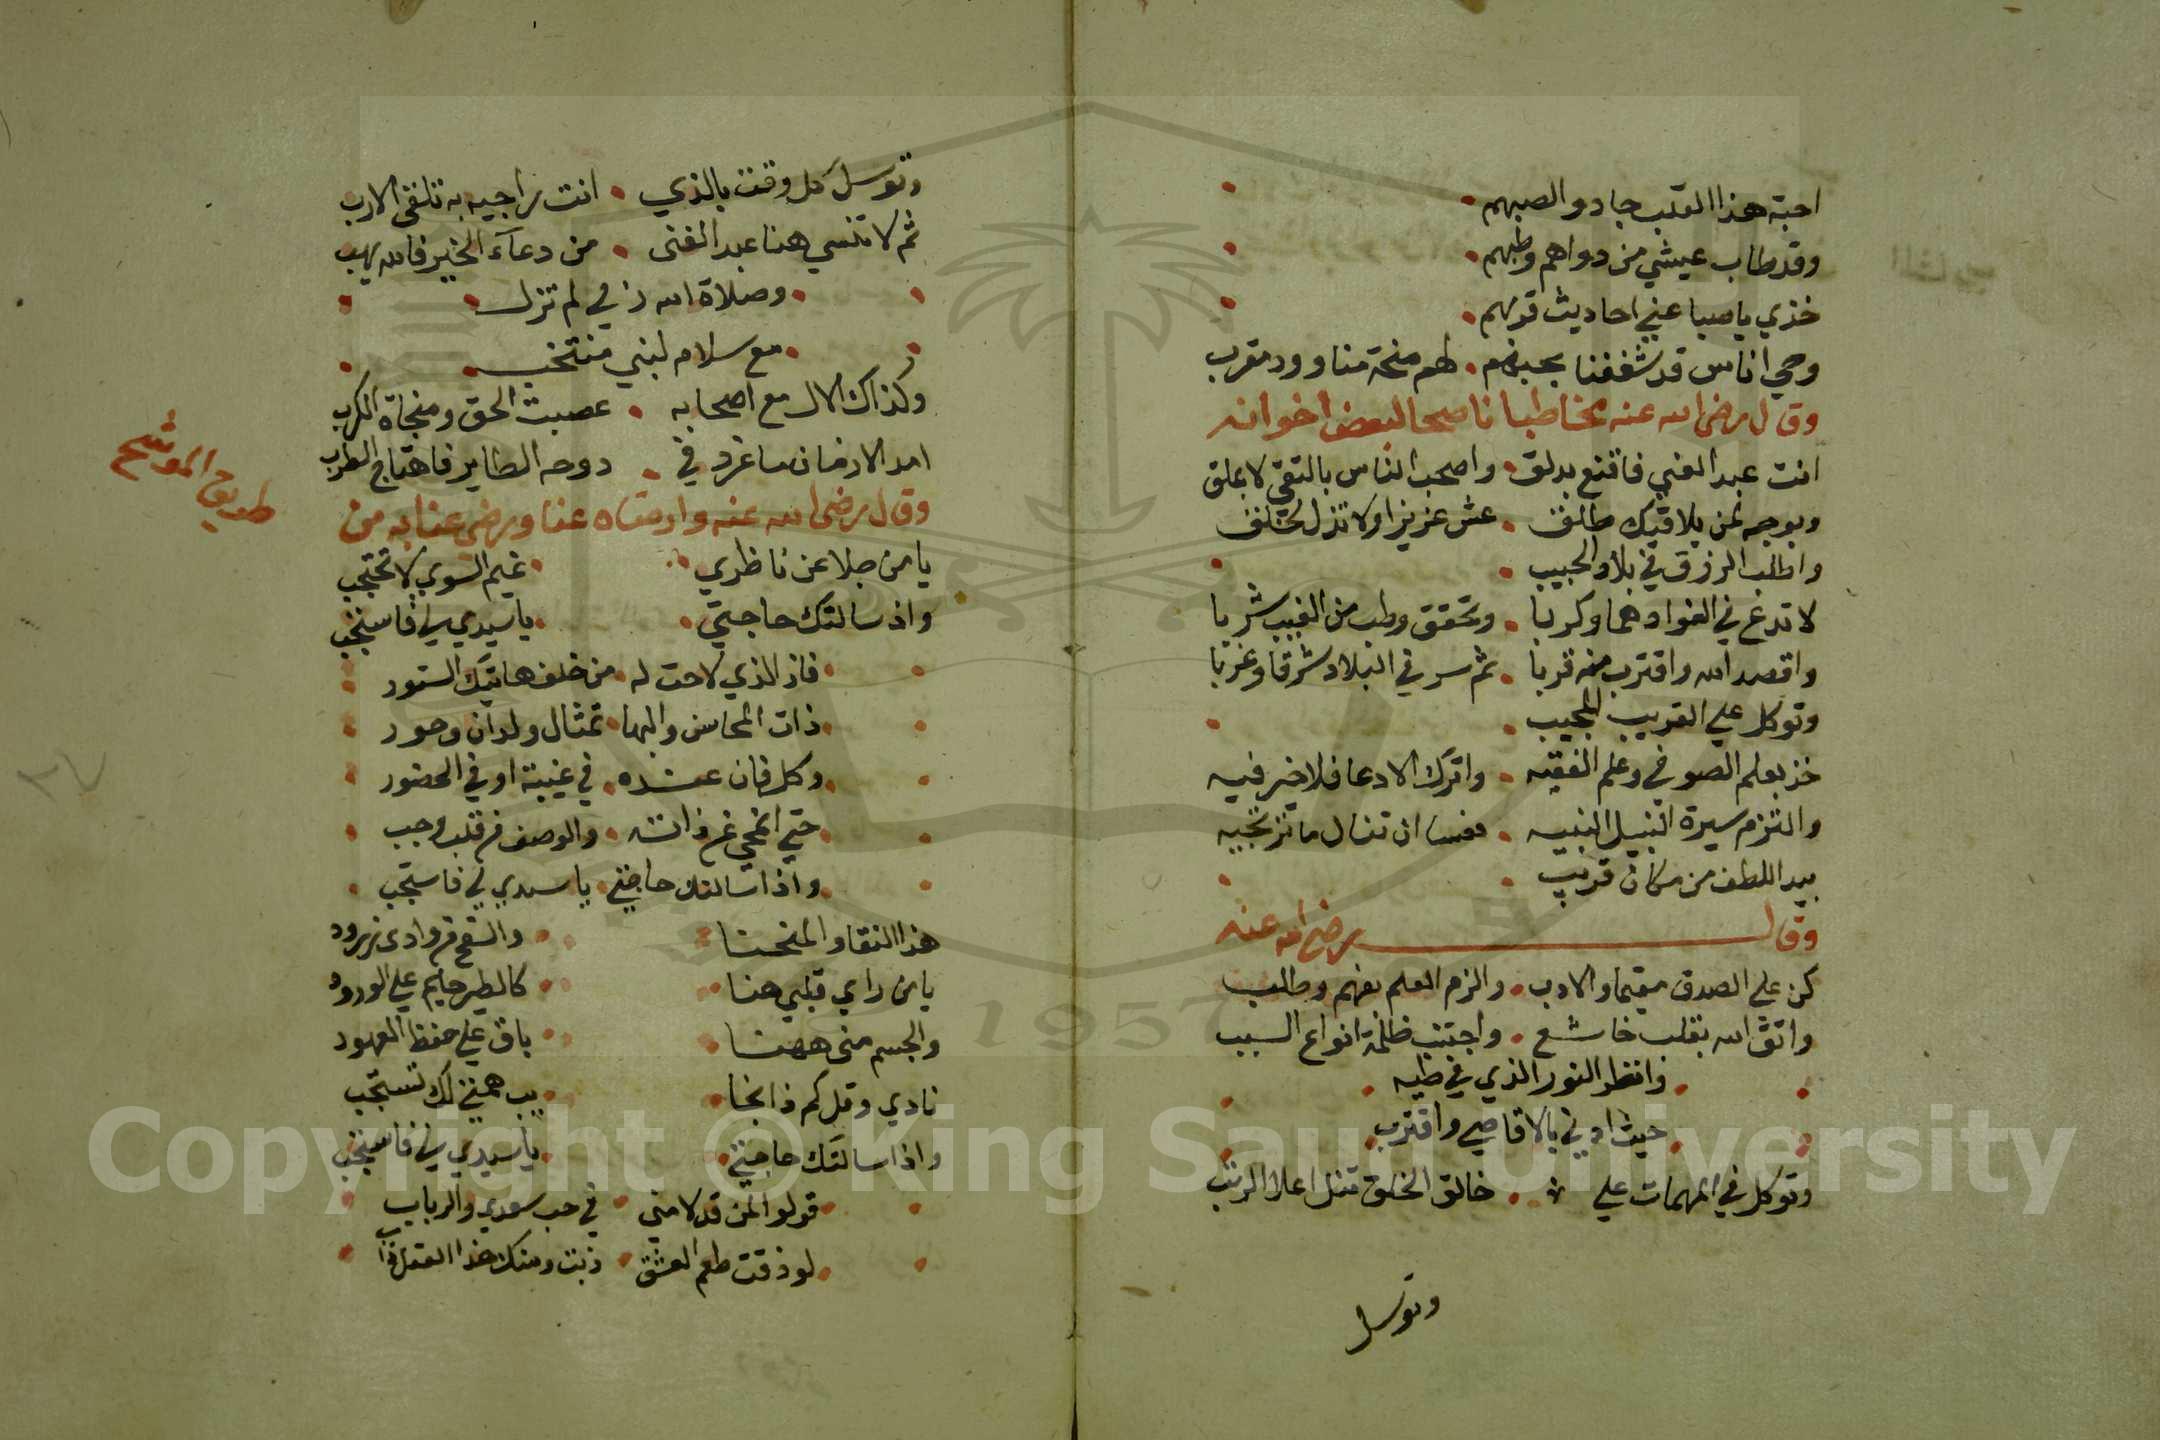 احبة هذا القلب جادوا لصبهم
وقد طاب عيشي من دواهم وطبهم
خذي يا صبا عني احاديث قربهم
وحي اناس قد شغفنا بحبهم لهم منحة منا وود مقرب
وقال رضي الله عنه مخاطبا ناصحا لبعض اخوانه
انت عبد الغني فاقنع بدلق واصحب الناس بالتقى لا بملق
وبوجه لمن يلاقيك طلق عش عزيزا ولا تذل لخلق
واطلب الرزق في بلاد الحبيب
لا تدع في الفواد هما وكربا وتحقق وطب من الغيب شربا
واقصد الله واقترب منه قربا ثم سر في البلاد شرقا وغربا
وتوكل علي القريب المجيب
خذ بعلم الصوفي وعلم الفقيه واترك الادعا فلا خير فيه
والتزم سيرة النبيل النبيه فعسا ان تنال ما ترتجيه
بيد اللطف من مكان قريب
وقال رضي الله عنه
كن علي الصدق مقيما والادب والزم العلم بفهم وطلب
واتق الله بقلب خاشع واجتنب ظلمة انواع السبب
وانظر النور الذي في طيه
حيث ادني بالاقاصي واقترب
وتوكل في المهمات علي خالق الخلق تنل اعلا الرتب
وتوسل
وتوسل كل وقت بالذي انت راجيه به تلقى الارب
ثم لا تنسي هنا عبد الغنى من دعآء الخير فالله يهب
وصلاة الله ربي لم تزل
مع سلام لنبي منتخب
وكذاك الال مع اصحابه عصبت الحق ومنجاة الكرب
امد الازمان ما غرد في دوحه الطاير فاهتاج الطرب
وقال رضي الله عنه وارضاه عنا ورضي عنا به من
طريق الموشح
يا من جلا عن ناظري غيم السوي لا تحتجب
واذ سالتك حاجتي يا سيدي لي فاستجب
فاز الذي لاحت له من خلف هاتيك الستور
ذات المحاسن والبها تمثال ولدان وحور
وكل فان عنده في غيبة او في الحضور
حتي انمحي عن ذاته والوصف من قلب وجب
واذا سالتك حاجتي يا سيدي لي فاستجب
هذا النقا والمنحنا والسفح من وادي زرود
يا من راي قلبي هنا كالطير حايم علي الورود
والجسم مني ههنا باق علي حفظ العهود
نادي وقل كم ذا الخنا يب همني لك تستجب
واذا سالتك حاجتي يا سيدي لي فاستجب
قولوا لمن قد لامني في حب سعدي والرباب
لو ذقت طعم العشق ذبت ومنك هذا العقل غاب
٢٧
Copyright © King Saud University
1957